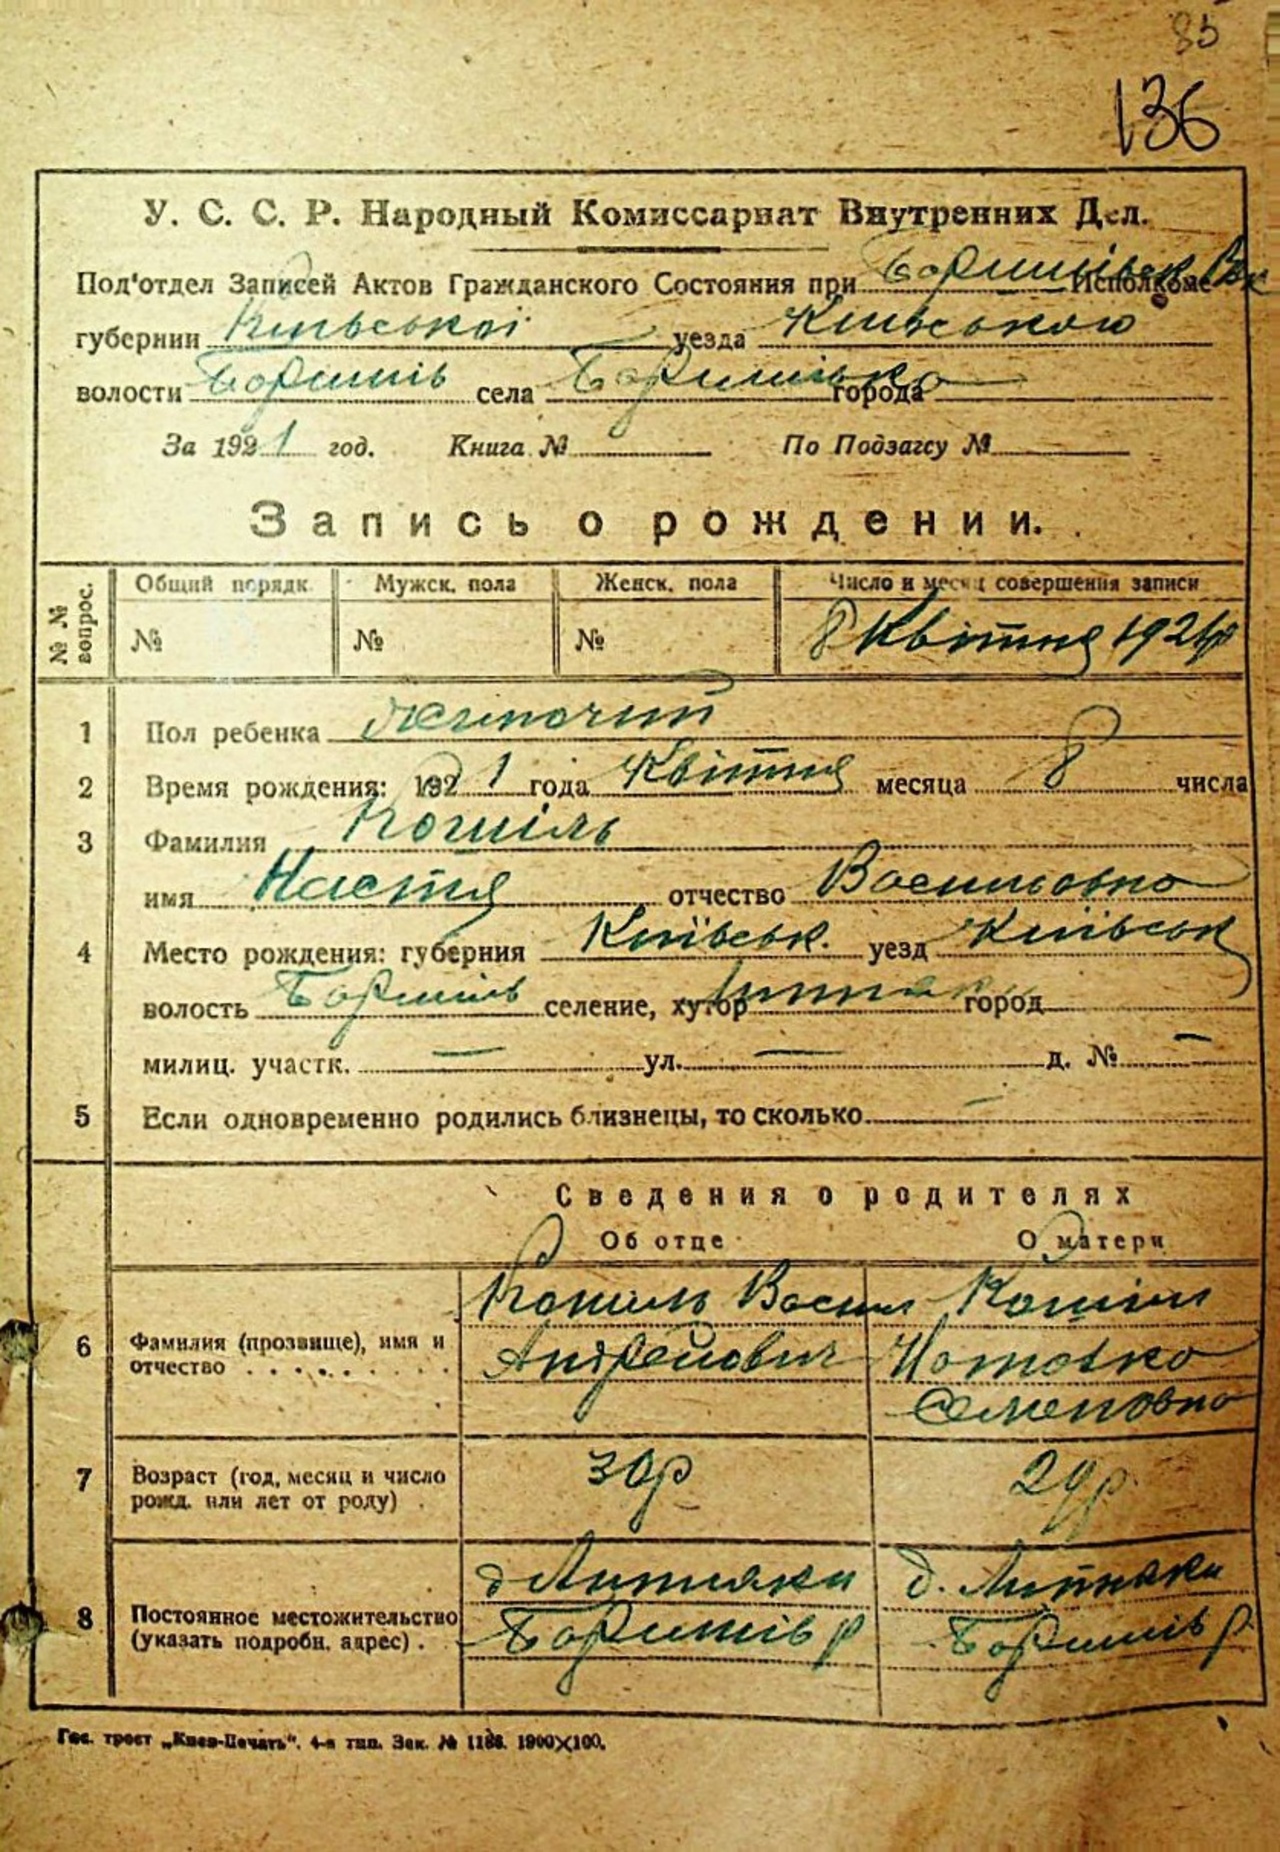 85
136
У. С. С. Р. Народный Комиссариат Внутренних Дел.
Под'отдел Записей Актов Гражданского Состояния при Исполкоме
губернии Київської уезда Київського
волости Баришів села города
За 1921 год. Книга № По Подзагсу №
Запись о рождении.
№ № вопрос. Общий порядк. Мужск. пола Женск. пола Число и месяц совершения записи
№ № № 8 Квітня 1921р
1 Пол ребенка жіночий
2 Время рождения: 1921 года Квітня месяца 8 числа
3 Фамилия Кошіль
имя Настя отчество Василівна
4 Место рождения: губерния Київськ. уезд Київськ
волость Баришів селение, хутор город
милиц. участк. — ул. — д. № —
5 Если одновременно родились близнецы, то сколько —
Сведения о родителях
Об отце О матери
6 Фамилия (прозвище), имя и отчество
Кошіль Васил
Андрейович
Кошіль
Семеновна
7 Возраст (год, месяц и число рожд. или лет от роду) . 30р 29р.
8 Постоянное местожительство (указать подробн. адрес) .
д Липняки
Баришів р
д. Липняки
Баришів р.
Гос. трест „Киев-Печать". 4-я тип. Зак. № 1186. 1900×100.